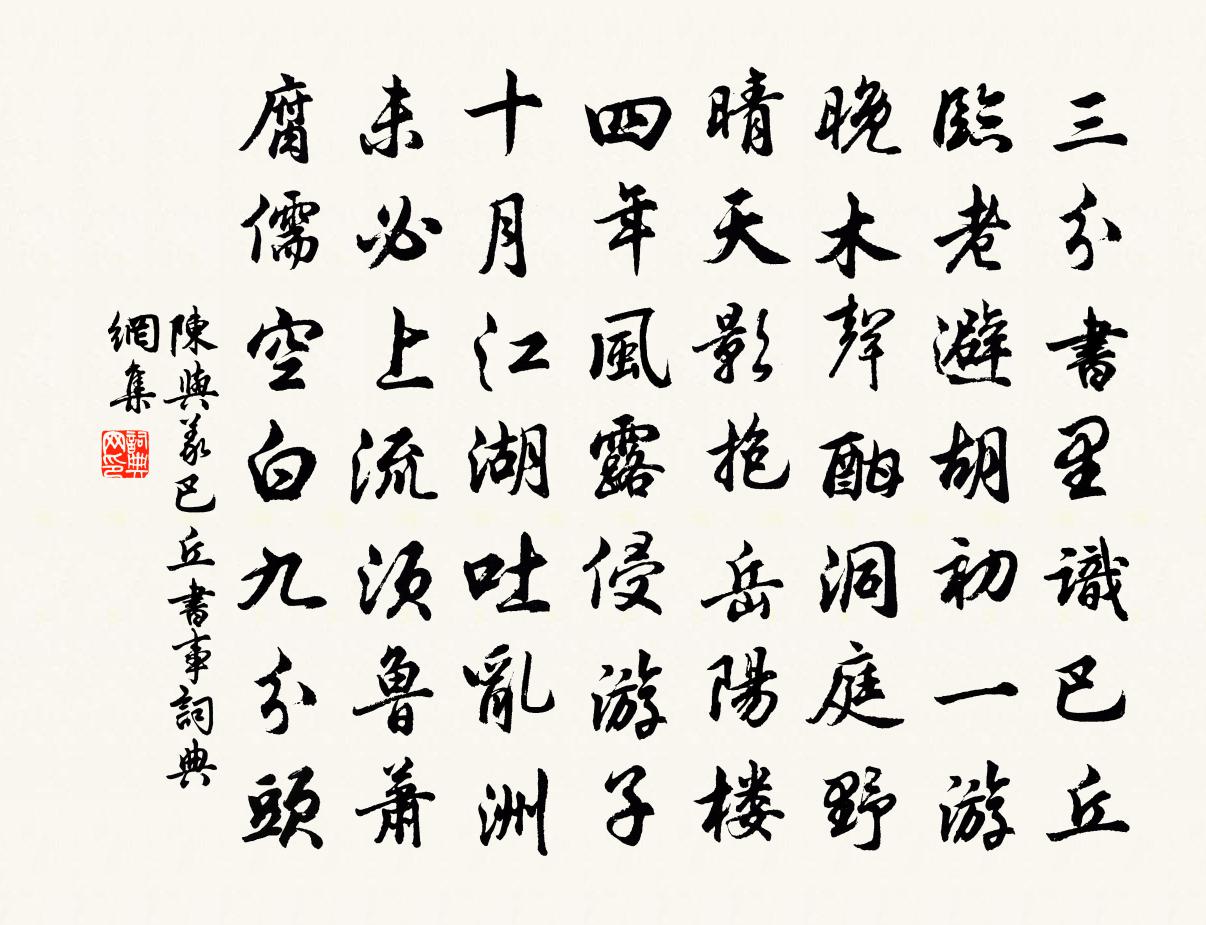 三分書里識巴丘
臨老避胡初一游
晚木聲酣洞庭野
晴天影抱岳陽楼
四年風露侵游子
十月江湖吐亂洲
未必上流須魯肅
腐儒空白九分頭
陳與義巴丘書事詞典
網集
詞典网印